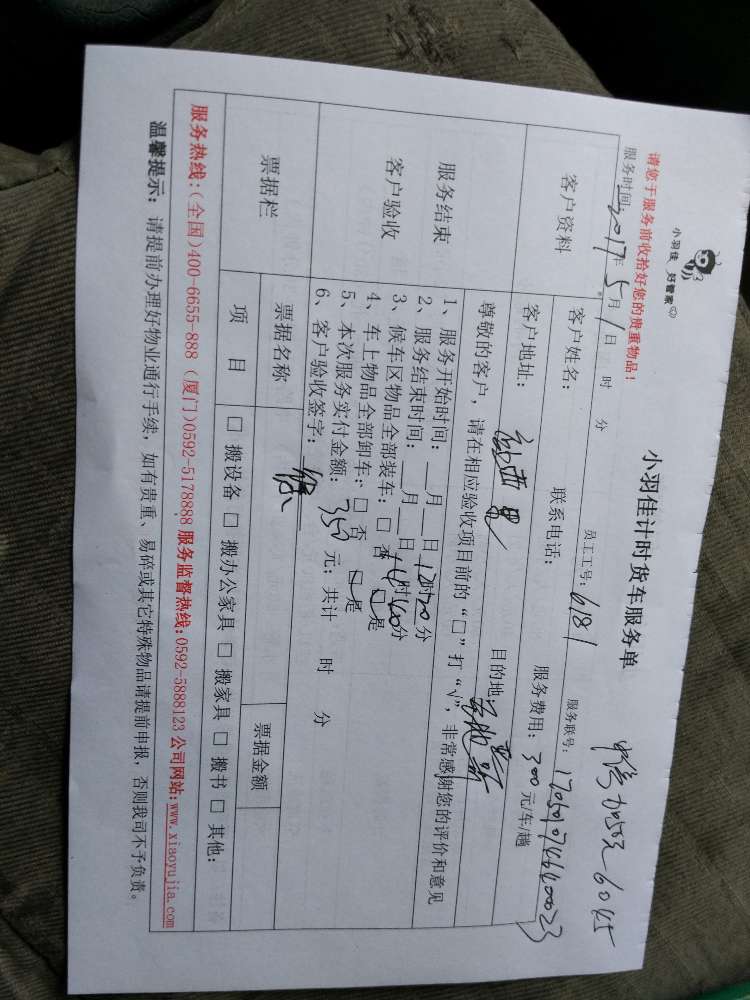 小羽佳 好管家
小羽佳计时货车服务单
请您于服务前收拾好您的贵重物品!
服务时间: 2017年 5月 1日 时 分 员工工号: 6181 服务联号:
客户资料
客户姓名: 联系电话: 服务费用: 300 元/车/趟
客户地址: 目的地:
服务结束
客户验收
尊敬的客户,请在相应验收项目前的“□”打“√”,非常感谢您的评价和意见
1、服务开始时间: 月 日 12时20分
2、服务结束时间: 月 日 14时40分
3、候车区物品全部装车: □ 否 □ 是
4、车上物品全部卸车: □ 否 □ 是
5、本次服务实付金额: 350 元; 共计 时 分
6、客户验收签字:
票据栏
票据名称 票据金额
项 目 □ 搬设备 □ 搬办公家具 □ 搬家具 □ 搬书 □ 其他:
服务热线:(全国)400-6655-888 (厦门)0592-5178888 服务监督热线:0592-5888123 公司网站:www.xiaoyujia.com
温馨提示: 请提前办理好物业通行手续,如有贵重、易碎或其它特殊物品请提前申报,否则我司不予负责。